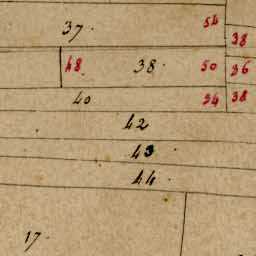 37. 54
38
48. 38. 50 36
40 54 38
42
43.
44.
17.